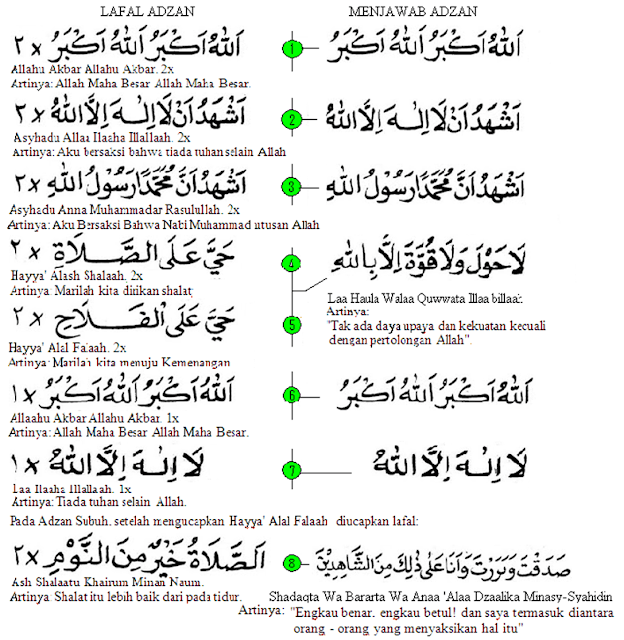 LAFAL ADZAN MENJAWAB ADZAN
اَللهُ اَكْبَرُ اَللهُ اَكْبَرُ ٢ x 1 اَللهُ اَكْبَرُ اَللهُ اَكْبَرُ
Allahu Akbar Allahu Akbar. 2x
Artinya: Allah Maha Besar Allah Maha Besar.
اَشْهَدُ اَنْ لَا اِلٰهَ اِلَّا اللهُ ٢ x 2 اَشْهَدُ اَنْ لَا اِلٰهَ اِلَّا اللهُ
Asyhadu Allaa Ilaaha Illallaah. 2x
Artinya: Aku bersaksi bahwa tiada tuhan selain Allah
اَشْهَدُ اَنَّ مُحَمَّدًا رَسُوْلُ اللهِ ٢ x 3 اَشْهَدُ اَنَّ مُحَمَّدًا رَسُوْلُ اللهِ
Asyhadu Anna Muhammadar Rasulullah. 2x
Artinya: Aku Bersaksi Bahwa Nabi Muhammad utusan Allah
حَيَّ عَلَى الصَّلَاةِ ٢ x 4 لَا حَوْلَ وَلَا قُوَّةَ اِلَّا بِاللهِ
Hayya' Alash Shalaah. 2x
Artinya: Marilah kita dirikan shalat
Laa Haula Walaa Quwwata Illaa billaah
Artinya:
"Tak ada daya upaya dan kekuatan kecuali
dengan pertolongan Allah".
حَيَّ عَلَى الْفَلَاحِ ٢ x 5
Hayya' Alal Falaah. 2x
Artinya: Marilah kita menuju Kemenangan
اَللهُ اَكْبَرُ اَللهُ اَكْبَرُ ١ x 6 اَللهُ اَكْبَرُ اَللهُ اَكْبَرُ
Allaahu Akbar Allahu Akbar. 1x
Artinya: Allah Maha Besar Allah Maha Besar.
لَا اِلٰهَ اِلَّا اللهُ ١ x 7 لَا اِلٰهَ اِلَّا اللهُ
Laa Ilaaha Illallaah. 1x
Artinya: Tiada tuhan selain Allah.
Pada Adzan Subuh, setelah mengucapkan Hayya' Alal Falaah diucapkan lafal:
اَلصَّلَاةُ خَيْرٌ مِنَ النَّوْمِ ٢ x 8 صَدَقْتَ وَبَرَرْتَ وَاَنَا عَلَى ذٰلِكَ مِنَ الشَّاهِدِيْنَ
Ash Shalaatu Khairum Minan Naum.
Artinya: Shalat itu lebih baik dari pada tidur.
Shadaqta Wa Bararta Wa Anaa 'Alaa Dzaalika Minasy-Syahidin
Artinya: "Engkau benar, engkau betul! dan saya termasuk diantara
orang - orang yang menyaksikan hal itu"